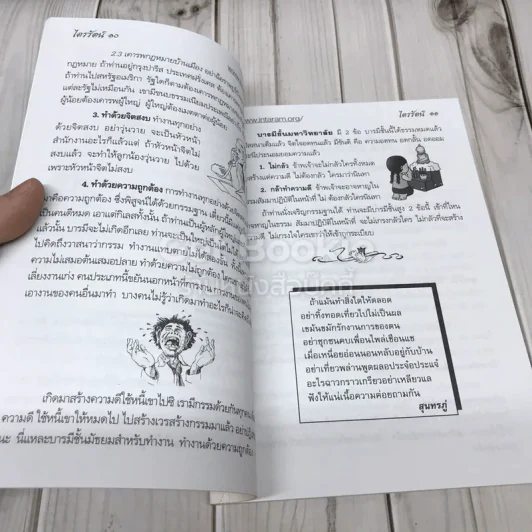 ไตรรัตน์ ๑๐
2.3 เคารพกฎหมายบ้านเมือง อย่าฉีก
กฎหมาย ถ้าท่านอยู่กรุงปารีส ประเทศฝรั่งเศส ต้อง
ถ้าไปสหรัฐอเมริกา รัฐใดก็ตามต้องเคารพกฎหมาย
แต่ละรัฐไม่เหมือนกัน เขามีขนบธรรมเนียมประเพณี
ผู้น้อยต้องเคารพผู้ใหญ่ ผู้ใหญ่ต้องเมตตาต่อผู้น้อย
3. ทำด้วยจิตสงบ ทำงานทุกอย่าง
ด้วยจิตสงบ อย่าวุ่นวาย จะเป็นหัวหน้า
สำนักงานอะไรก็แล้วแต่ ถ้าหัวหน้าจิตไม่
สงบแล้ว จะทำให้ลูกน้องวุ่นวาย ไปด้วย
เพราะหัวหน้าจิตไม่สงบ
4. ทำด้วยความถูกต้อง การทำงานทุกอย่างต้อง
คือความถูกต้อง ซึ่งพิสูจน์ได้ด้วยกรรมฐาน
เป็นคนดีหมด เอาแต่กิเลสทั้งนั้น ถ้าท่านเป็นผู้พิพากษา
แล้วนั้น บารมีจะไม่เกิดอีกเลย ท่านจะเป็นใหญ่
ไปคิดถึงวาสนากว่ากรรม ทำงานแทบตายไม่ได้สองขั้น
ความไม่เสมอต้นเสมอปลาย ทำด้วยความไม่ถูกต้อง ได้
เลี่ยงงานเก่ง คนประเภทนี้ขยันนอกหน้าที่การงาน
เอางานของคนอื่นมาทำ บางคนไม่รู้ว่าเกิดมาทำอะไร
เกิดมาสร้างความดีใช้หนี้เขาไปซิ เรามีกรรมด้วยกันทุกคน
ความดี ใช้หนี้เขาให้หมดไป ไปสร้างเวรสร้างกรรมมาแล้ว
นะ นี่แหละบารมีชั้นมัธยมสำหรับทำงาน ทำงานด้วยความถูกต้อง
www.intaram.org/
ไตรรัตน์ ๑๑
บารมีชั้นมหาวิทยาลัย มี 2 ข้อ บารมีชั้นนี้ได้ธรรมะหมดแล้ว
จิตใจอดทนแล้ว มีขันติ คือ ความอดทน อดกลั้น อดออม
ประนีประนอมยอมความแล้ว
1. ไม่กลัว ข้าพเจ้าจะไม่กลัวใครทั้งหมด
สร้างแต่ความดี ไม่ต้องกลัว ใครมาว่านินทา
2. กล้าทำความดี ข้าพเจ้าจะอาจหาญใน
สัมมาปฏิบัติในหน้าที่ ไม่ต้องกลัวใครนินทา
ถ้าท่านนั่งเจริญกรรมฐานได้ ท่านจะมีบารมีชั้นสูง 2 ข้อนี้ เข้าที่ไหน
หาญในธรรม สัมมาปฏิบัติในหน้าที่ จะไม่เกรงกลัวใคร ไม่กลัวที่จะสร้าง
ความดี ไม่เกรงใจใครเขาว่าให้เข้าถูกกระเบียบ
ถ้าแม้นทำสิ่งใดให้ตลอด
อย่าทิ้งทอดเที่ยวไปไม่เป็นผล
เขมันขมักรักงานการของตน
อย่าซุกซนคบเพื่อนไพล่เชือนแช
เมื่อเหนื่อยอ่อนนอนหลับอยู่กับบ้าน
อย่าเที่ยวพล่านพูดผลอประจ๋อประแจ๋
อะไรฉาวกราวเกรียวอย่าเหลียวแล
ฟังให้แน่เนื้อความค่อยถามกัน
สุนทรภู่